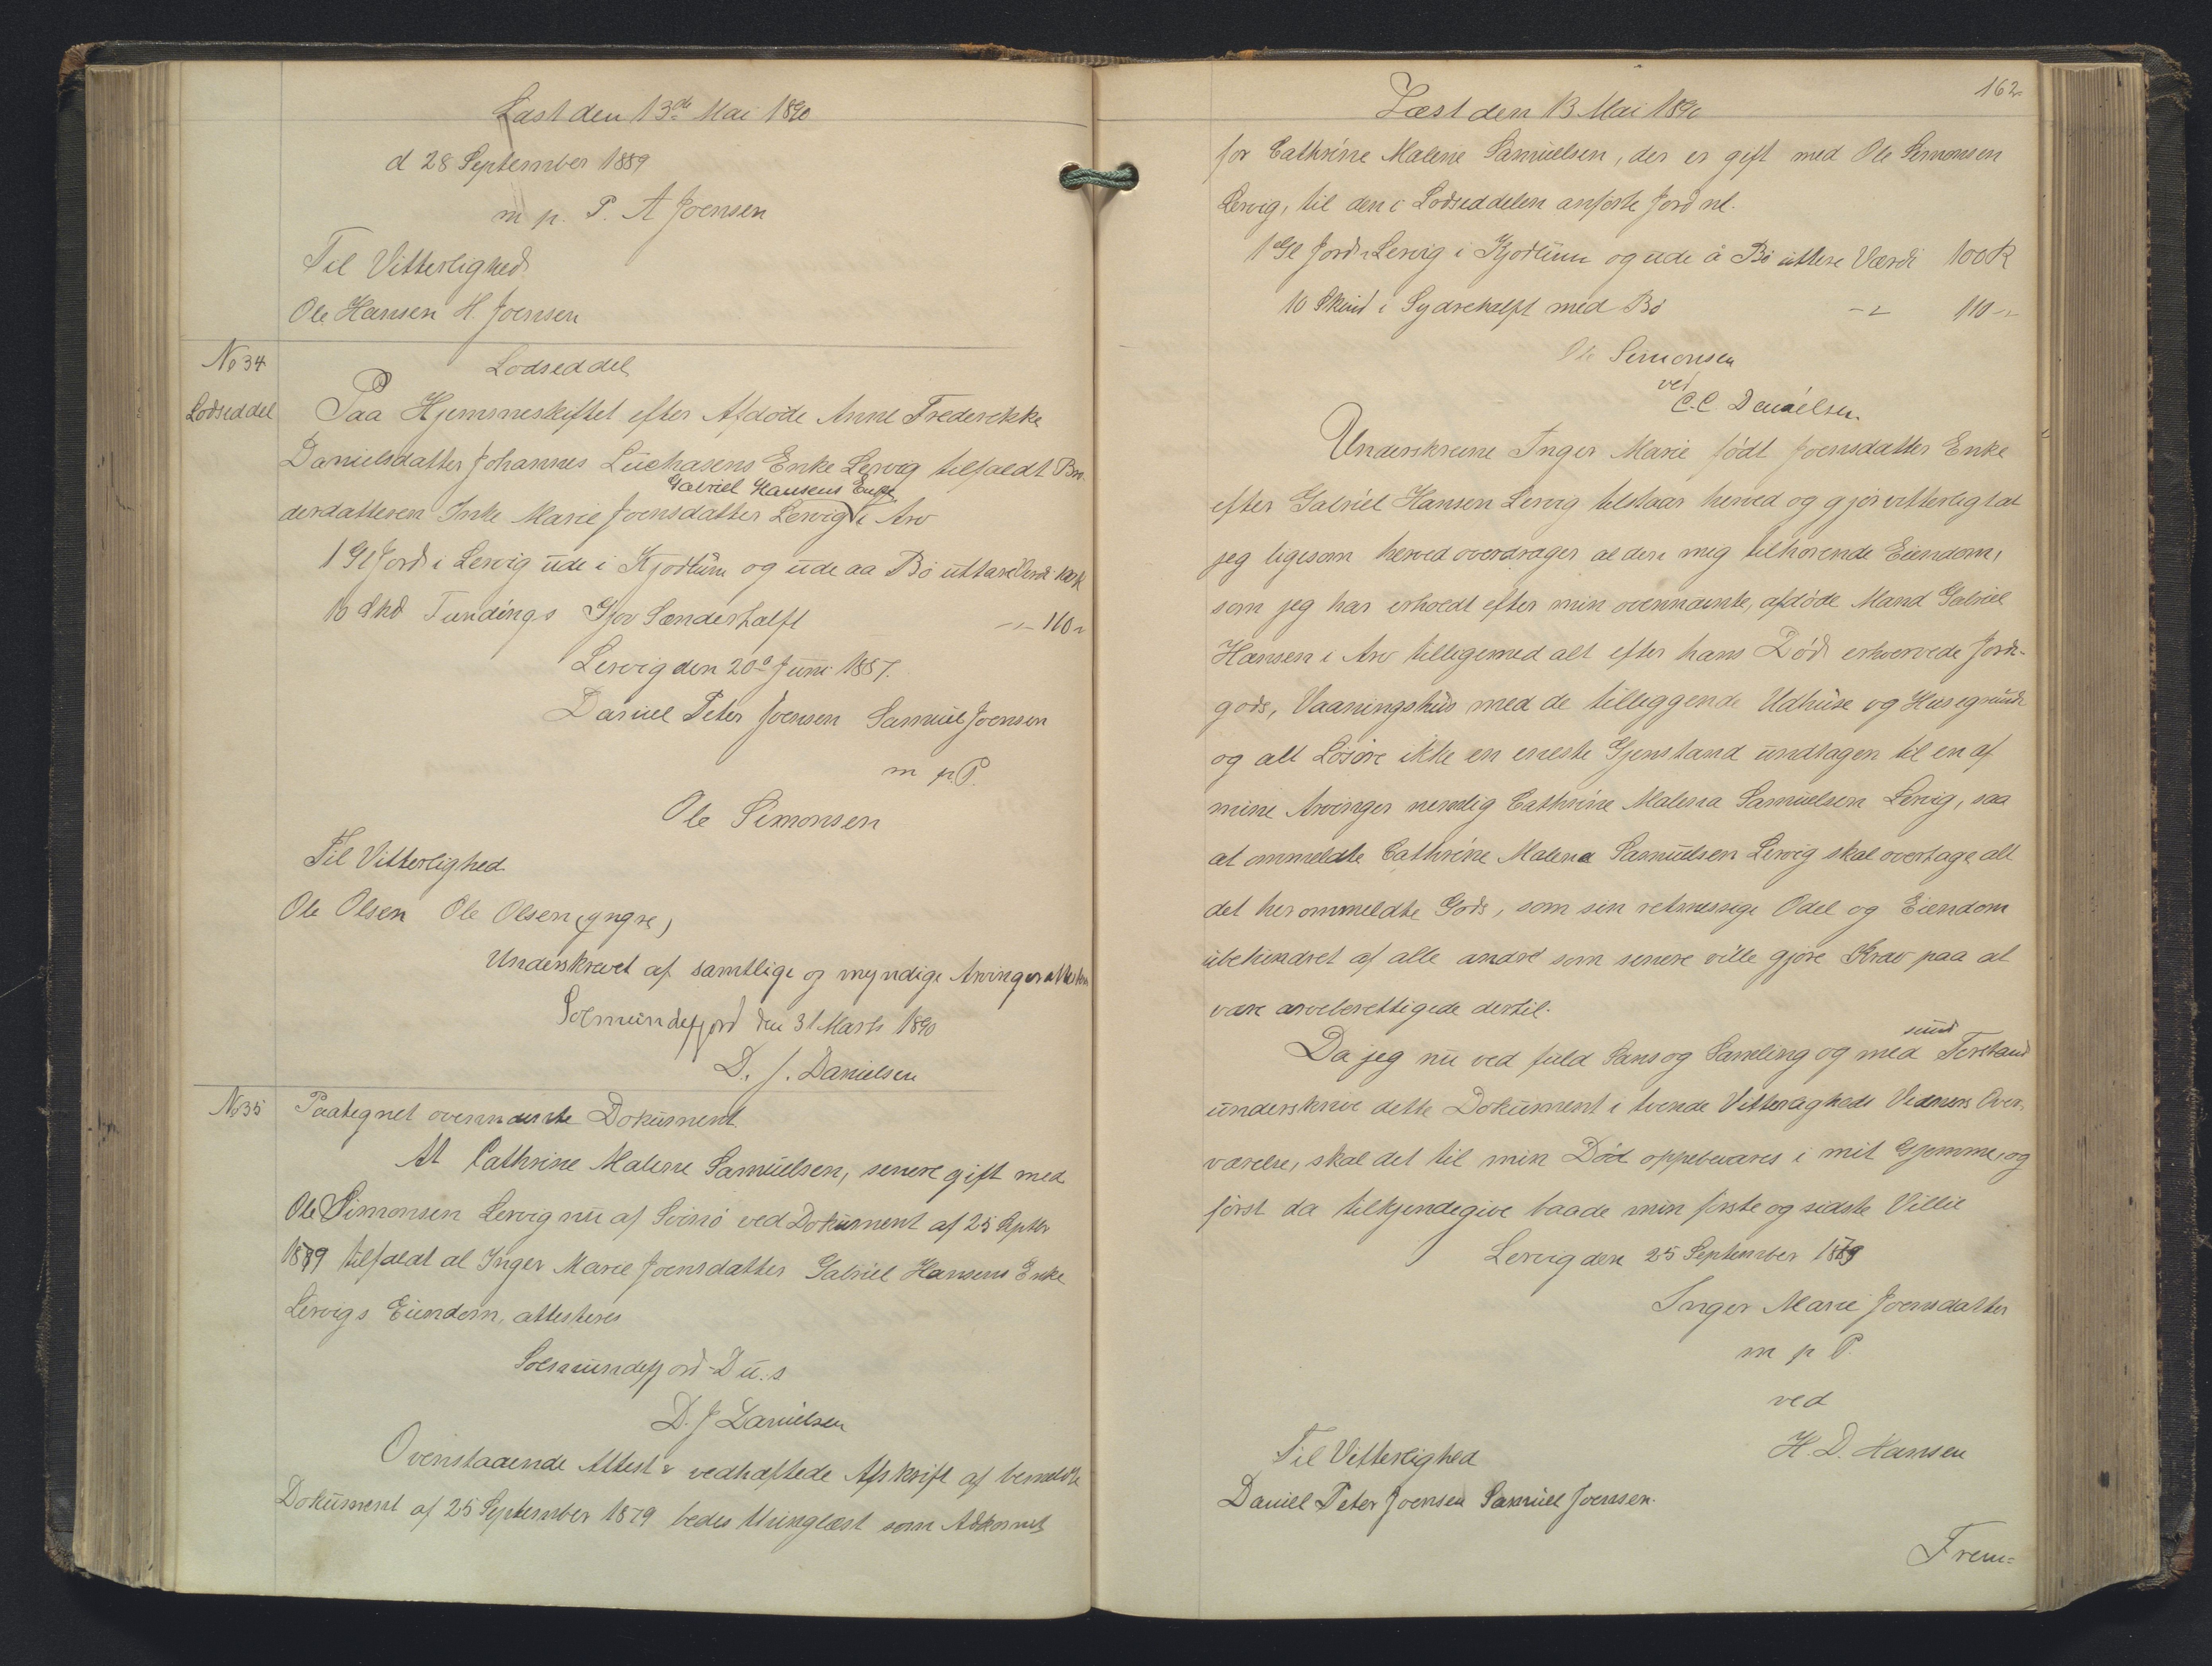 Læst den 13de Mai 1890
d 28 September 1889
m p. P. A Joensen
Til Vitterlighed
Ole Hansen H. Joensen
No 34
Lodseddel
Lodseddel
Paa Hjemmeskiftet efter Afdøde Anne Frederekke
Danielsdatter Johannes Luchasens Enke Lervig tilfaldt Bro-
Gabriel Hansens Enke
derdatteren Inke Marie Joensdatter Lervig i Arv
1 Gl Jord i Lervig ude i Kjødtum og ude aa Bø uttare Værdi 100 K
10 Skd Tundings Gjov Sønderhalft -"- 110 "
Lervig den 20de Juni 1887.
Daniel Peter Joensen Samuel Joensen
m p P.
Ole Simonsen
Til Vitterlighed
Ole Olsen Ole Olsen (yngre)
Underskrevet af samtlige og myndige Arvinger attesteres
Solmundefjord den 31 Marts 1890
D. J. Danielsen
No 35
Paategnet ovennævnte Dokument
At Cathrine Malene Samuelsen, senere gift med
Ole Simonsen Lervig nu af Svinø ved Dokument af 25 Septbr
1879 tilfaldt al Inger Marie Joensdatter Gabriel Hansens Enke
Lervigs Eiendom, attesteres
Solmundefjord D. u. s
D. J Danielsen
Ovenstaaende Attest & vedhæftede Afskrift af bemeldte
Dokument af 25 September 1879 bedes thinglæst som Adkomst
162
Læst den 13 Mai 1890
for Cathrine Malene Samuelsen, der er gift med Ole Simonsen
Lervig, til den i Lodseddelen anførte Jord nl.
1 Gl Jord i Lervig i Kjødtum og ude å Bø uttere Værdi 100 K
10 Skind i Sydrehalft med Bø -"- 110 "
Ole Simonsen
ved
C. C Danielsen.
Underskrevne Inger Marie født Joensdatter Enke
efter Gabriel Hansen Lervig tilstaar herved og gjør vitterligt at
jeg ligesom herved overdrager al den mig tilhørende Eiendom,
som jeg har erholdt efter min ovennævnte, afdøde Mand Gabriel
Hansen i Arv tilligemed alt efter hans Død erhvervede Jord-
gods, Vaaningshus med de tilliggende Udhuse og Husegrund
og alt Løsøre ikke en eneste Gjenstand undtagen til en af
mine Arvinger nemlig Cathrine Malena Samuelsen Lervig, saa
at ommeldte Cathrine Malena Samuelsen Lervig skal overtage alt
det her ommeldte Gods, som sin retmessige Odel og Eiendom
ubehindret af alle andre som senere ville gjøre Krav paa at
være arveberettigede dertil.
sund
Da jeg nu ved fuld Sans og Samling og med Forstand
underskrive dette Dokument i tvende Vitterligheds Vidners Over-
værelse, skal det til min Død oppebevares i mit Gjemme, og
først da tilkjendegive baade min første og sidste Villie
Lervig den 25 September 1879
Inger Marie Joensdatter
m p P.
ved
H. D. Hansen
Til Vitterlighed
Daniel Peter Joensen Samuel Joensen.
Frem=